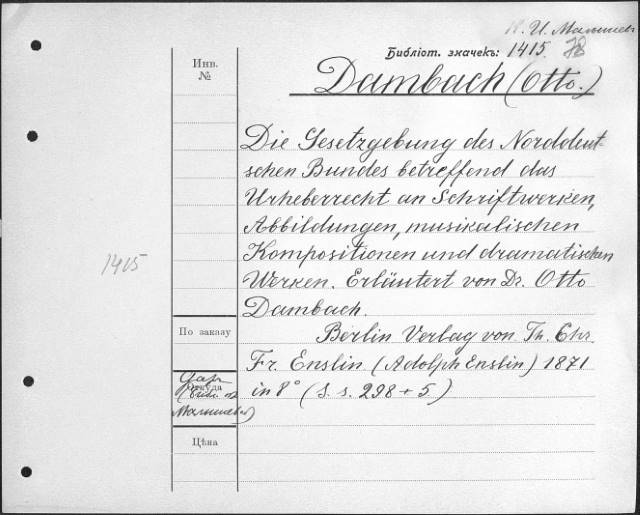 И. Малышев
Библіот. значекъ: 1415. 78
Dambach (Otto.)
Инв.
№
Die Gesetzgebung des Norddeut-
schen Bundes betreffend das
Urheberrecht an Schriftwerken,
Abbildungen, musikalischen
Kompositionen und dramatischen
Werken. Erläutert von Dr. Otto
Dambach.
1415
Berlin Verlag von Th. Chr.
Fr. Enslin (Adolph Enslin) 1871
in 8° (S. s. 298 + 5.)
По заказу
Даръ
Откуда
Малышева)
Цѣна